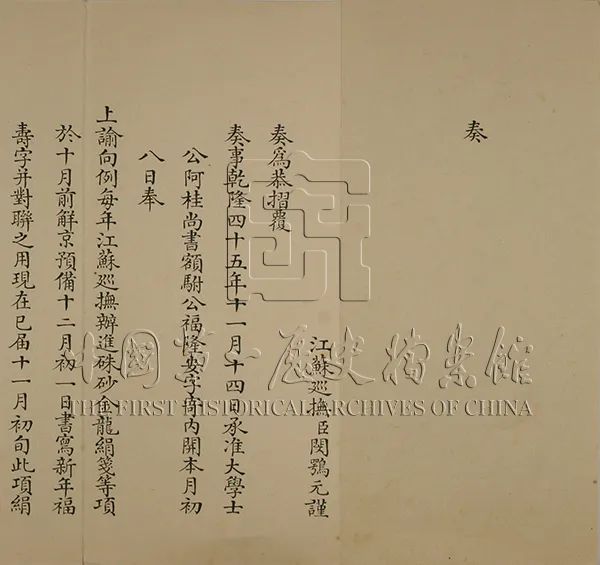 奏
江蘇巡撫臣閔鶚元謹
奏爲恭摺覆
奏事乾隆四十五年十一月十四日承准大學士
公阿桂尚書額駙公福隆安字寄內開本月初
八日奉
上諭向例每年江蘇巡撫辦進硃砂金龍絹箋等項
於十月前解京預備十二月初一日書寫新年福
壽字并對聯之用現在已屆十一月初旬此項絹
中國第一歷史檔案館
THE FIRST HISTORICAL ARCHIVES OF CHINA